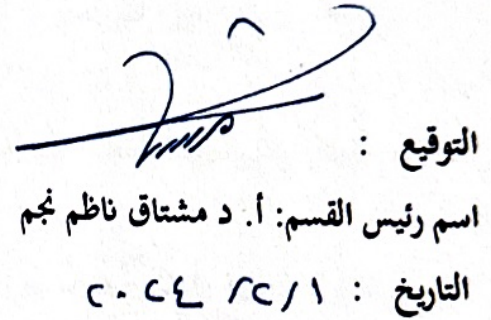 التوقيع :
اسم رئيس القسم: أ. د مشتاق ناظم نجم
التاريخ : ١ / ٢٢ / ٢٠٢٤